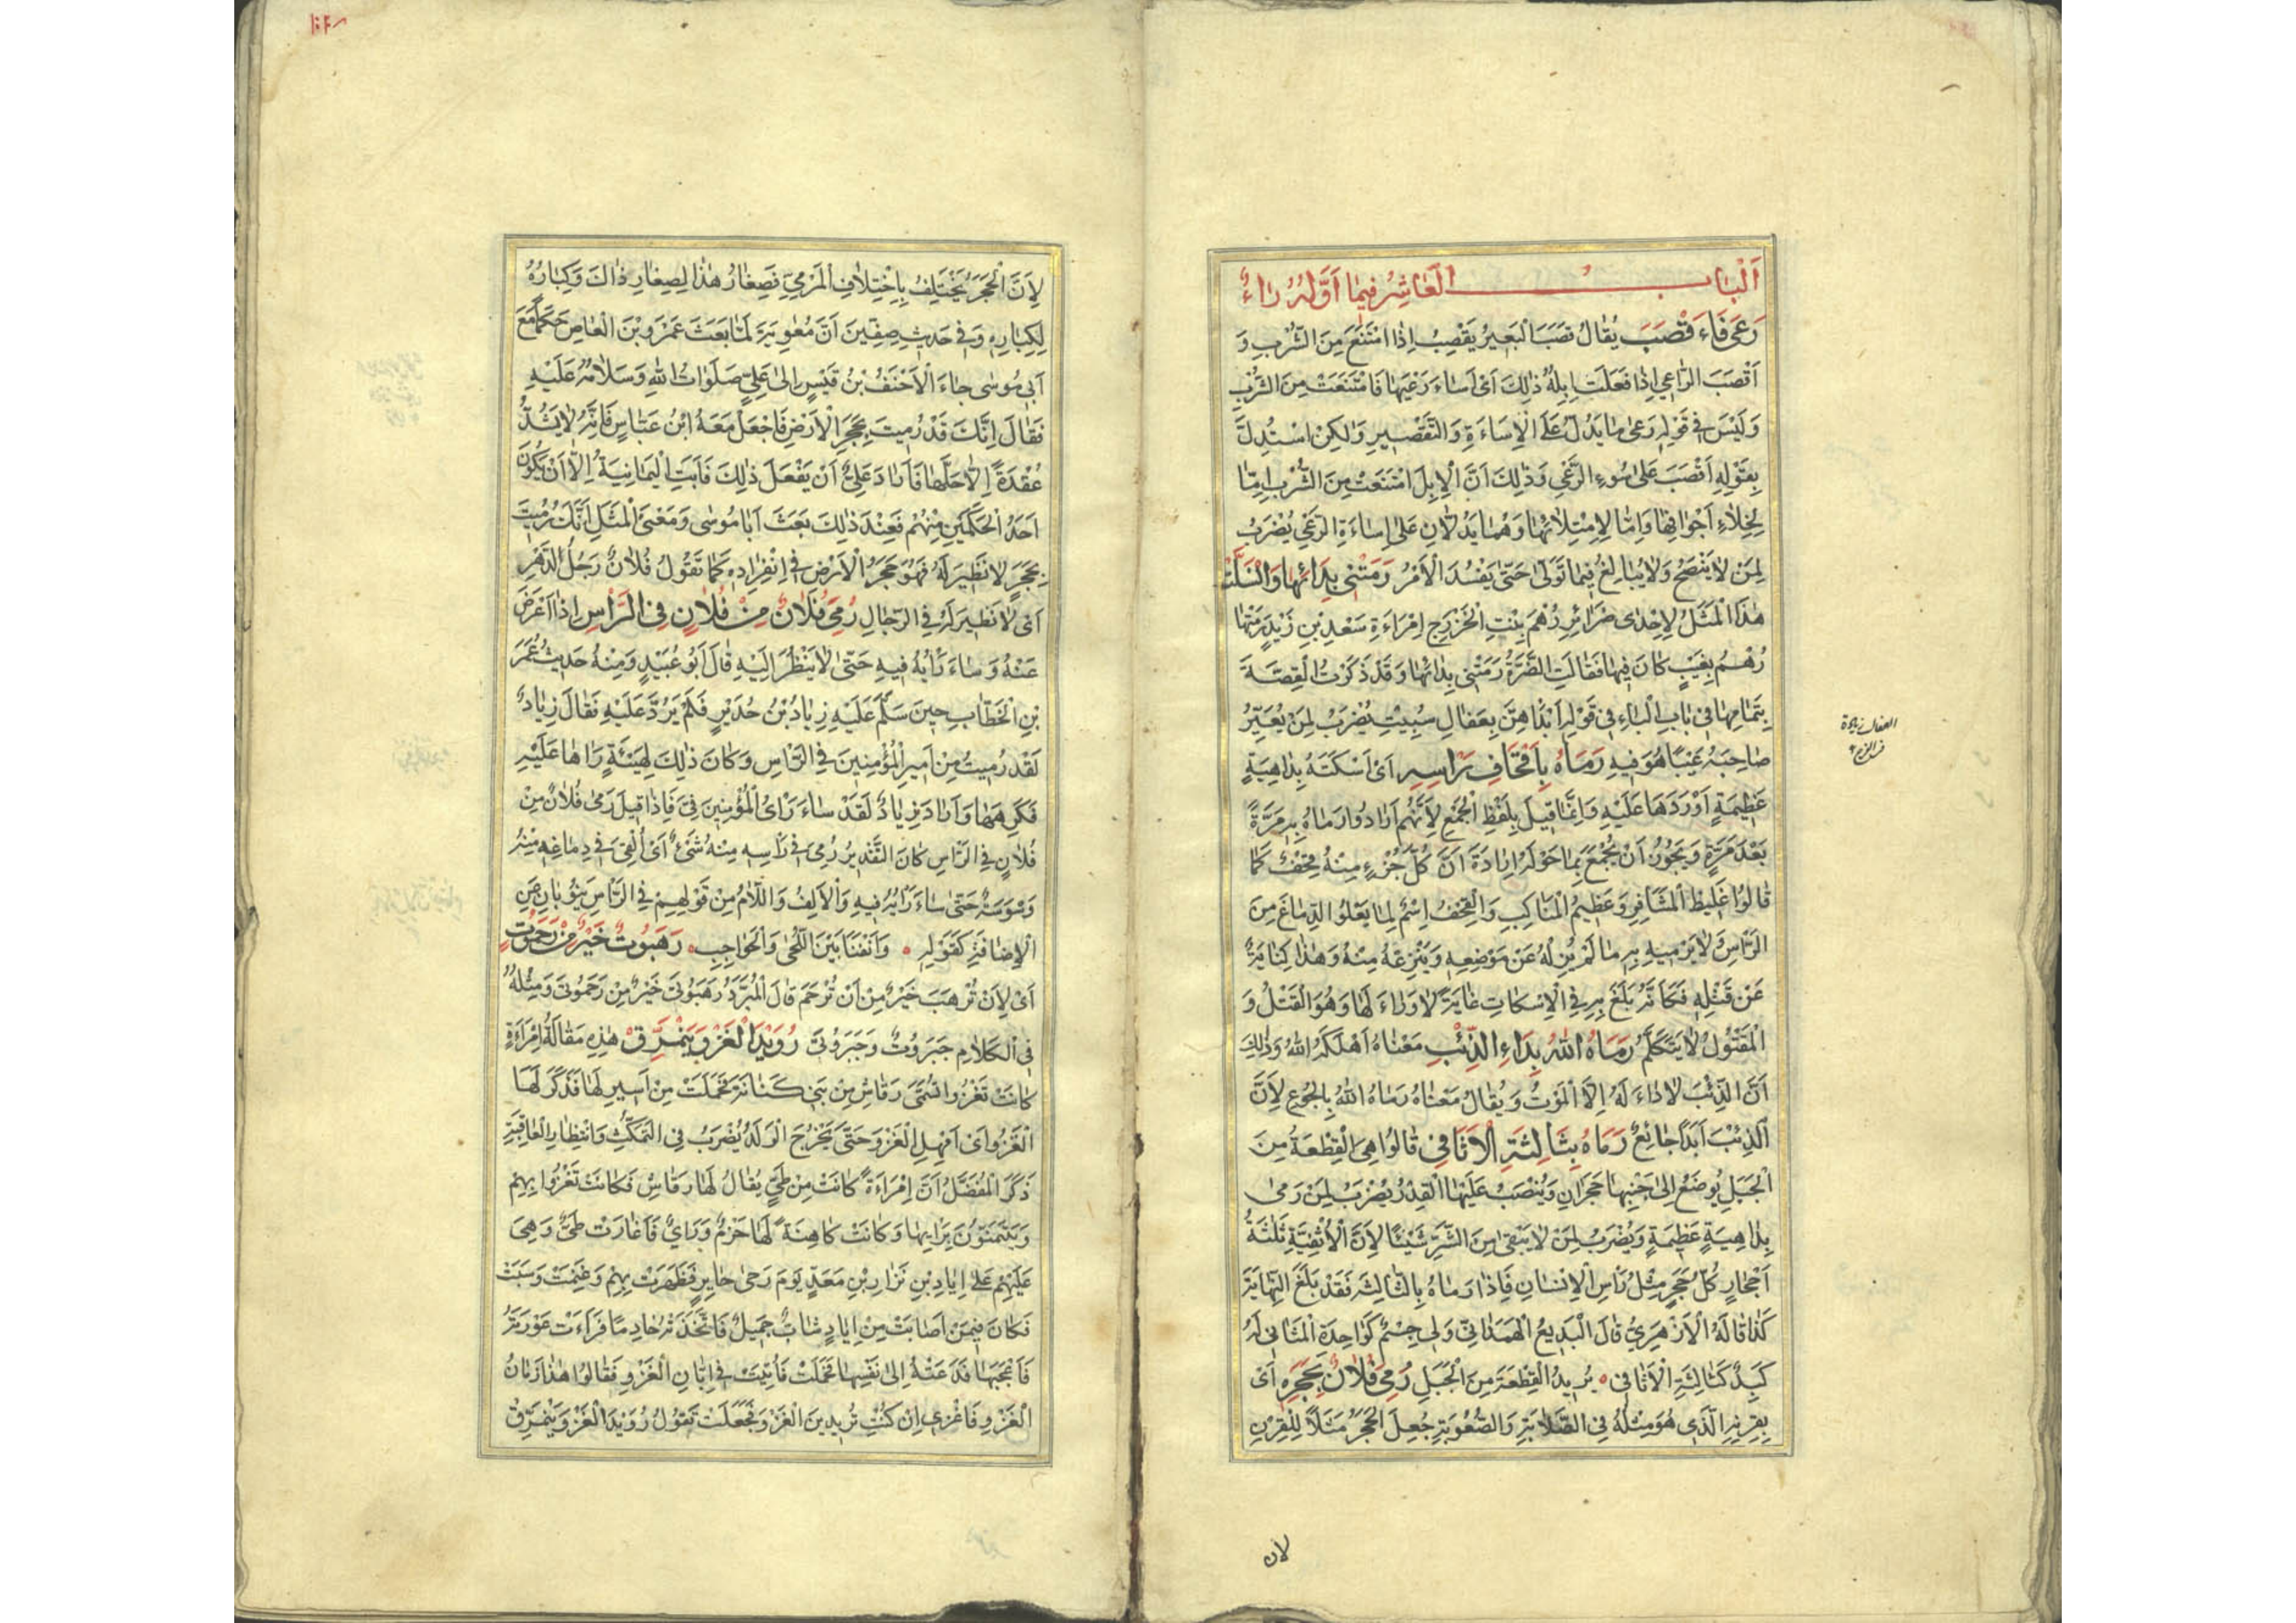 اَلْبَابُ الْعَاشِرُ فِيمَا اَوَّلُهُ رَاءٌ
رَعَى فَاَقْصَبَ يُقَالُ قَصَبَ الْبَعِيرُ يَقْصِبُ اِذَا امْتَنَعَ مِنَ الشُّرْبِ وَ
اَقْصَبَ الرَّاعِي اِذَا فَعَلَتْ اِبِلُهُ ذٰلِكَ اَىْ اَسَاءَ رَعْيَهَا فَامْتَنَعَتْ مِنَ الشُّرْبِ
وَلَيْسَ فِي قَوْلِهِ رَعَى مَا يَدُلُّ عَلَى الْاِسَاءَةِ وَالتَّقْصِيرِ وَلٰكِنِ اسْتُدِلَّ
بِقَوْلِهِ اَقْصَبَ عَلَى سُوءِ الرَّعْيِ وَذٰلِكَ اَنَّ الْاِبِلَ امْتَنَعَتْ مِنَ الشُّرْبِ اِمَّا
لِخَلَاءِ اَجْوَافِهَا وَاِمَّا لِاِمْتِلَائِهَا وَهُمَا يَدُلَّانِ عَلَى اِسَاءَةِ الرَّعْيِ يُضْرَبُ
لِمَنْ لَا يَنْصَحُ وَلَا يُبَالِغُ فِيمَا تَوَلَّى حَتَّى يَفْسُدَ الْاَمْرُ رَمَتْنِي بِدَائِهَا وَانْسَلَّتْ
هٰذَا الْمَثَلُ لِاِحْدَى ضَرَائِرِ رُهْمَ بِنْتِ الْخَزْرَجِ اِمْرَاَةِ سَعْدِ بْنِ زَيْدٍ رَمَتْهَا
رُهْمُ بِعَيْبٍ كَانَ فِيهَا فَقَالَتِ الضَّرَّةُ رَمَتْنِي بِدَائِهَا وَقَدْ ذَكَرْتُ الْقِصَّةَ
بِتَمَامِهَا فِي بَابِ الْبَاءِ فِي قَوْلِهِ اَبْدَاهِنَّ بِعَفَالِ سُبِيتِ يُضْرَبُ لِمَنْ يُعَيِّرُ
صَاحِبَهُ عَيْبًا هُوَ فِيهِ رَمَاهُ بِاَقْحَافِ رَاْسِهِ اَىْ اَسْكَتَهُ بِدَاهِيَةٍ
عَظِيمَةٍ اَوْرَدَهَا عَلَيْهِ وَاِنَّمَا قِيلَ بِلَفْظِ الْجَمْعِ لِاَنَّهُمْ اَرَادُوا رَمَاهُ بِهِ مَرَّةً
بَعْدَ مَرَّةٍ وَيَجُوزُ اَنْ يُجْمَعَ بِمَا حَوْلَهُ اِرَادَةَ اَنَّ كُلَّ جُزْءٍ مِنْهُ قِحْفٌ كَمَا
قَالُوا غَلِيظُ الْمَشَافِرِ وَعَظِيمُ الْمَنَاكِبِ وَالْقِحْفُ اِسْمٌ لِمَا يَعْلُوا الدِّمَاغَ مِنَ
الرَّاْسِ وَلَا يَرْمِيهِ بِهِ مَا لَمْ يُزِلْهُ عَنْ مَوْضِعِهِ وَيَنْزِعَهُ مِنْهُ وَهٰذَا كِنَايَةٌ
عَنْ قَتْلِهِ فَكَاَنَّهُ بَلَغَ بِهِ فِي الْاِسْكَاتِ غَايَةً لَا وَرَاءَ لَهَا وَهُوَ الْقَتْلُ وَ
الْمَقْتُولُ لَا يَتَكَلَّمُ رَمَاهُ اللّٰهُ بِدَاءِ الذِّئْبِ مَعْنَاهُ اَهْلَكَهُ اللّٰهُ وَذٰلِكَ
اَنَّ الذِّئْبَ لَا دَاءَ لَهُ اِلَّا الْمَوْتُ وَيُقَالُ مَعْنَاهُ رَمَاهُ اللّٰهُ بِالْجُوعِ لِاَنَّ
الذِّئْبَ اَبَدًا جَائِعٌ رَمَاهُ بِثَالِثَةِ الْاَثَافِي قَالُوا هِيَ الْقِطْعَةُ مِنَ
الْجَبَلِ يُوضَعُ اِلَى جَنْبِهَا حَجَرَانِ وَيُنْصَبُ عَلَيْهَا الْقِدْرُ يُضْرَبُ لِمَنْ رَمَى
بِدَاهِيَةٍ عَظِيمَةٍ وَيُضْرَبُ لِمَنْ لَا يَبْقَى مِنَ الشَّرِّ شَيْئًا لِاَنَّ الْاُثْفِيَّةَ ثَلٰثَةُ
اَحْجَارٍ كُلُّ حَجَرٍ مِثْلُ رَاْسِ الْاِنْسَانِ فَاِذَا رَمَاهُ بِالثَّالِثَةِ فَقَدْ بَلَغَ النِّهَايَةَ
كَذَا قَالَهُ الْاَزْهَرِيُّ قَالَ الْبَدِيعُ الْهَمَدَانِيُّ وَلِي جِسْمٌ كَوَاحِدَةِ الْمَثَانِي لَهُ
كَبِدٌ كَثَالِثَةِ الْاَثَافِي ° يُرِيدُ الْقِطْعَةَ مِنَ الْجَبَلِ رُمِيَ فُلَانٌ بِحَجَرِهِ اَىْ
بِقِرْنِهِ الَّذِي هُوَ مِثْلُهُ فِي الصَّلَابَةِ وَالصُّعُوبَةِ جُعِلَ الْحَجَرُ مَثَلًا لِلْقِرْنِ
لان
لِاَنَّ الْحَجَرَ يَخْتَلِفُ بِاِخْتِلَافِ الْمَرْمِيِّ فَصِغَارُ هٰذَا لِصِغَارِ ذَاكَ وَكِبَارُهُ
لِكِبَارِهِ وَفِي حَدِيثِ صِفِّينَ اَنَّ مُعٰوِيَةَ لَمَّا بَعَثَ عَمْرَو بْنَ الْعَاصِ حَكَمًا مَعَ
اَبِي مُوسَى جَاءَ الْاَحْنَفُ بْنُ قَيْسٍ اِلَى عَلِيٍّ صَلَوَاتُ اللّٰهِ وَسَلَامُهُ عَلَيْهِ
فَقَالَ اِنَّكَ قَدْ رُمِيتَ بِحَجَرِ الْاَرْضِ فَاجْعَلْ مَعَهُ ابْنَ عَبَّاسٍ فَاِنَّهُ لَا يَشُدُّ
عُقْدَةً اِلَّا حَلَّهَا فَاَرَادَ عَلِيٌّ اَنْ يَفْعَلَ ذٰلِكَ فَاَبَتِ الْيَمَانِيَةُ اِلَّا اَنْ يَكُونَ
اَحَدُ الْحَكَمَيْنِ مِنْهُمْ فَعِنْدَ ذٰلِكَ بَعَثَ اَبَا مُوسَى وَمَعْنَى الْمَثَلِ اِنَّكَ رُمِيتَ
بِحَجَرٍ لَا نَظِيرَ لَهُ فَهُوَ حَجَرُ الْاَرْضِ فِي اِنْفِرَادِهِ كَمَا تَقُولُ فُلَانٌ رَجُلُ الدَّهْرِ
اَىْ لَا نَظِيرَ لَهُ فِي الرِّجَالِ رُمِيَ فُلَانٌ مِنْ فُلَانٍ فِي الرَّاْسِ اِذَا اَعْرَضَ
عَنْهُ وَسَاءَ رَاْيُهُ فِيهِ حَتَّى لَا يَنْظُرَ اِلَيْهِ قَالَ اَبُو عُبَيْدٍ وَمِنْهُ حَدِيثُ عُمَرَ
بْنِ الْخَطَّابِ حِينَ سَلَّمَ عَلَيْهِ زِيَادُ بْنُ حُدَيْرٍ فَلَمْ يَرُدَّ عَلَيْهِ فَقَالَ زِيَادٌ
لَقَدْ رُمِيتُ مِنْ اَمِيرِ الْمُؤْمِنِينَ فِي الرَّاْسِ وَكَانَ ذٰلِكَ لِهَيْئَةٍ رَاٰهَا عَلَيْهِ
فَكَرِهَهَا وَاَرَادَ زِيَادٌ لَقَدْ سَاءَ رَاْىُ الْمُؤْمِنِينَ فِيَّ فَاِذَا قِيلَ رَمَى فُلَانٌ مِنْ
فُلَانٍ فِي الرَّاْسِ كَانَ التَّقْدِيرُ رُمِيَ فِي رَاْسِهِ مِنْهُ شَيْءٌ اَىْ اُلْقِيَ فِي دِمَاغِهِ مِنْهُ
وَسْوَسَةٌ حَتَّى سَاءَ رَاْيُهُ فِيهِ وَالْاَلِفُ وَاللَّامُ مِنْ قَوْلِهِمْ فِي الرَّاْسِ يَنُوبَانِ عَنِ
الْاِضَافَةِ كَقَوْلِهِ ° وَاَنْفُنَا بَيْنَ اللِّحَى وَالْحَوَاجِبِ ° رَهَبُوتٌ خَيْرٌ مِنْ رَحَمُوتٍ
اَىْ لِاَنْ تُرْهَبَ خَيْرٌ مِنْ اَنْ تُرْحَمَ قَالَ الْمُبَرَّدُ رَهَبُوتَى خَيْرٌ مِنْ رَحَمُوتَى وَمِثْلُهُ
فِي الْكَلَامِ جَبَرُوتٌ وَجَبَرُوتَى رُوَيْدَ الْغَزْوَ يَنْمَرِقْ هٰذِهِ مَقَالَةُ اِمْرَاَةٍ
كَانَتْ تَغْزُو اتُسَمَّى رَقَاشِ مِنْ بَنِي كِنَانَةَ فَحَمَلَتْ مِنْ اَسِيرٍ لَهَا فَذُكِرَ لَهَا
الْغَزْوُ اَىْ اَمْهِلِ الْغَزْوَ حَتَّى يَخْرُجَ الْوَلَدُ يُضْرَبُ فِي التَّمَكُّثِ وَانْتِظَارِ الْعَاقِبَةِ
ذَكَرَ الْمُفَضَّلُ اَنَّ اِمْرَاَةً كَانَتْ مِنْ طَيٍّ يُقَالُ لَهَا رَقَاشِ فَكَانَتْ تَغْزُوا بِهِمْ
وَيَتَيَمَّنُونَ بِرَاْيِهَا وَكَانَتْ كَاهِنَةً لَهَا حَزْمٌ وَرَاْيٌ فَاَغَارَتْ طَيٌّ وَهِيَ
عَلَيْهِمْ عَلَى اِيَادِ بْنِ نِزَارِ بْنِ مَعَدٍّ يَوْمَ رَحَى جَابِرٍ فَظَفِرَتْ بِهِمْ وَغَنِمَتْ وَسَبَتْ
فَكَانَ فِيمَنْ اَصَابَتْ مِنْ اِيَادٍ شَابٌّ جَمِيلٌ فَاتَّخَذَتْهُ خَادِمًا فَرَاَتْ عَوْرَتَهُ
فَاَعْجَبَهَا فَدَعَتْهُ اِلَى نَفْسِهَا فَحَمَلَتْ فَاُتِيَتْ فِي اِبَّانِ الْغَزْوِ فَقَالُوا هٰذَا زَمَانُ
الْغَزْوِ فَاغْزِي اِنْ كُنْتِ تُرِيدِينَ الْغَزْوَ فَجَعَلَتْ تَقُولُ رُوَيْدَ الْغَزْوَ يَنْمَرِقْ